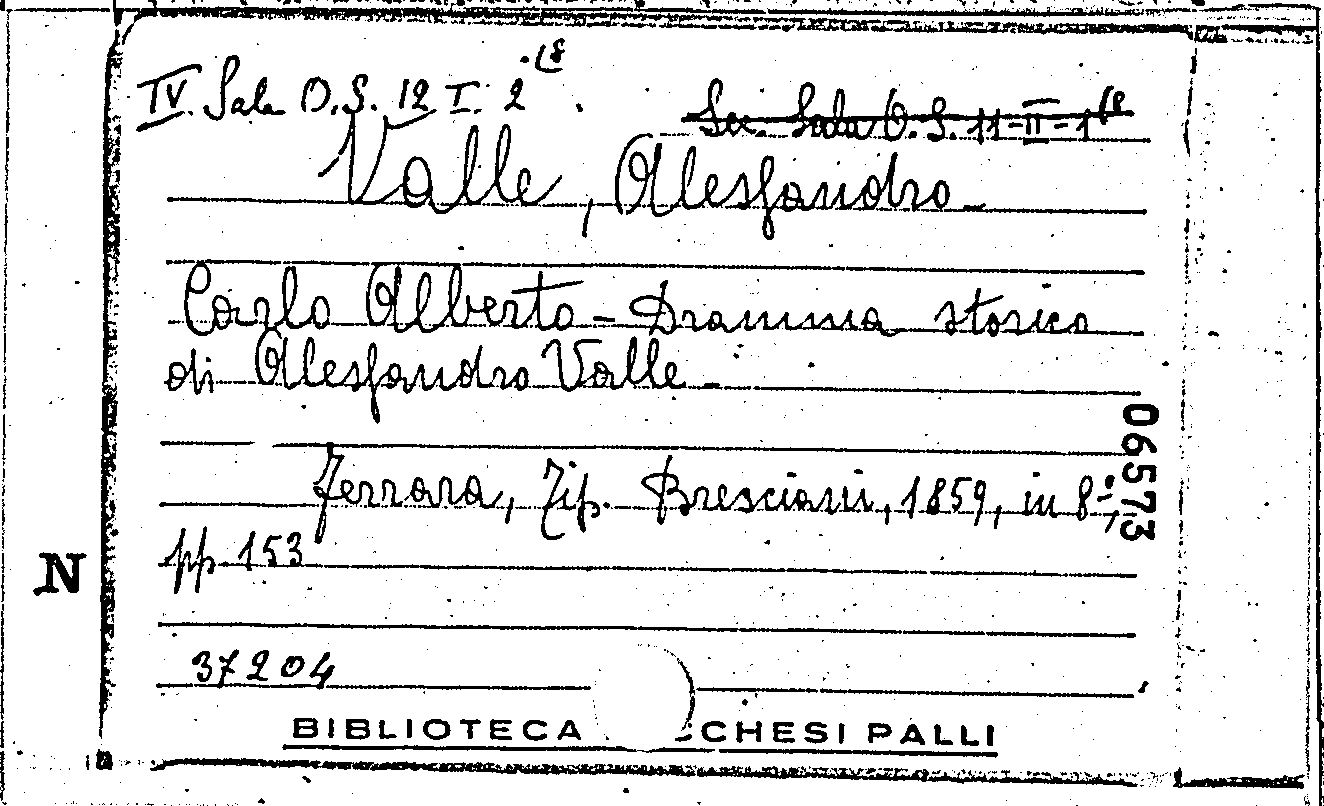 IV Sala O.S. 12 I. 2 18.
Sec. Sala O.S. 11-II-1 18
Valle, Alessandro
Carlo Alberto - Dramma storico
di Alessandro Valle -
Ferrara, Tip. Bresciani, 1859, in 8°,
pp. 153
06573
N
37204
BIBLIOTECA CHESI PALLI